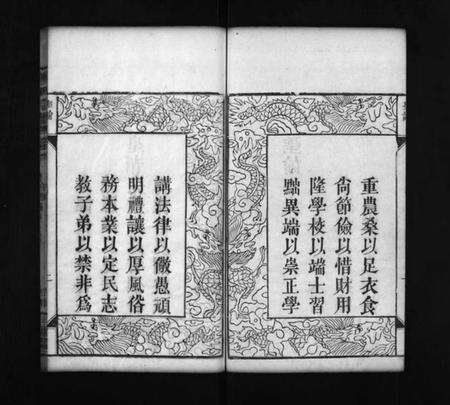 重農桑以足衣食
尙節儉以惜財用
隆學校以端士習
黜異端以崇正學
講法律以儆愚頑
明禮讓以厚風俗
務本業以定民志
教子弟以禁非爲